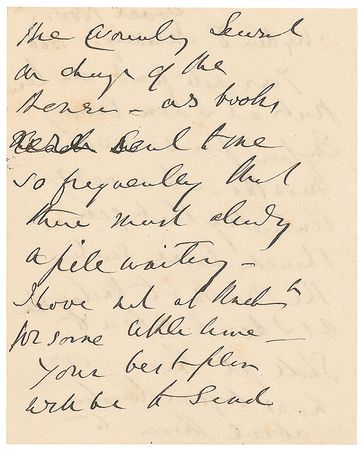 the Country Servt
in charge of the
House – as books
sent to me
so frequently that
there must already
a pile waiting –
I have not at
for some little time –
Your best plan
will be to send